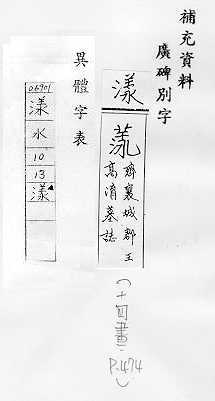 補充資料
廣碑別字
漾
齊襄城郡王
高淯墓誌
（十四畫）
P.474
異體字表
04701
漾
水
10
13
漾